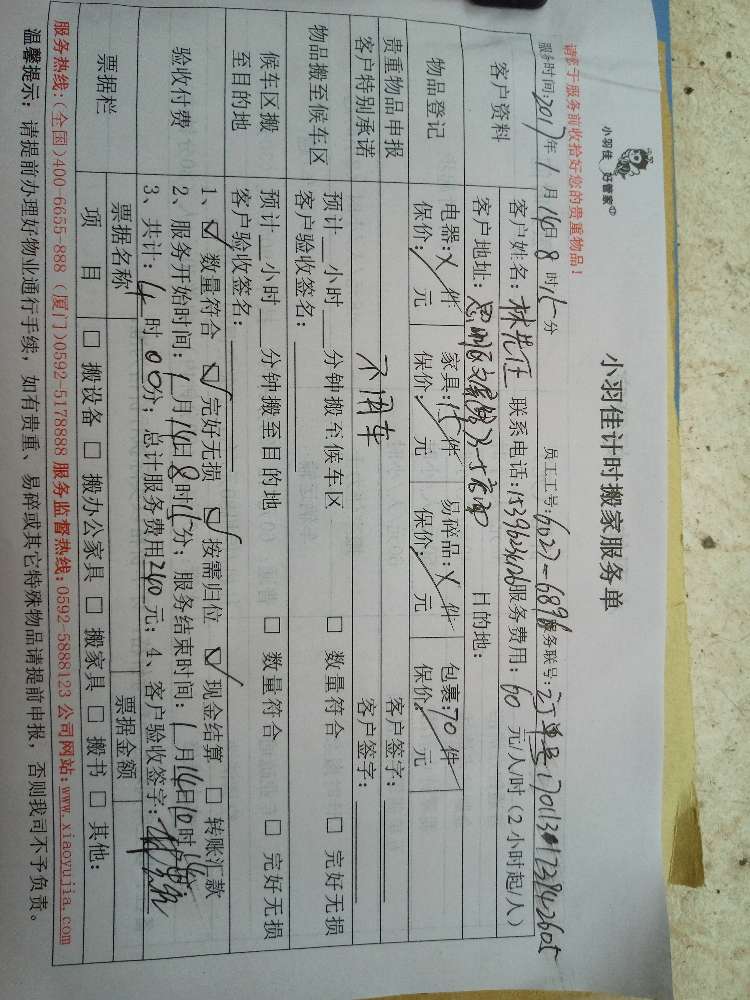 小羽佳 好管家
小羽佳计时搬家服务单
请于服务前收拾好您的贵重物品!
服务时间:2017年1月14日8时15分 员工工号:6027-6896 服务联号:订单号
客户资料 客户姓名:林先任 联系电话:15396234126 服务费用:60元/人/时(2小时起/人)
客户地址: 目的地:
物品登记 电器:X件 家具:15件 易碎品:X件 包裹:70件
保价:/元 保价:/元 保价:/元 保价:/元
贵重物品申报 客户签字:
客户特别承诺 不用车 客户签字:
物品搬至候车区 预计__小时__分钟搬至候车区 □ 数量符合 □ 完好无损
客户验收签名:
候车区搬至目的地 预计__小时__分钟搬至目的地 □ 数量符合 □ 完好无损
客户验收签名:
验收付费 1、☑ 数量符合 ☑ 完好无损 ☑ 按需归位 ☑ 现金结算 □ 转账汇款
2、服务开始时间:1月14日8时15分;服务结束时间:1月14日10时15分
3、共计:4时00分;总计服务费用240元;4、客户验收签字:
票据栏 票据名称 票据金额
项目 □ 搬设备 □ 搬办公家具 □ 搬家具 □ 搬书 □ 其他:
服务热线:(全国)400-6655-888 (厦门)0592-5178888 服务监督热线:0592-5888123 公司网站:www.xiaoyujia.com
温馨提示: 请提前办理好物业通行手续,如有贵重、易碎或其它特殊物品请提前申报,否则我司不予负责。